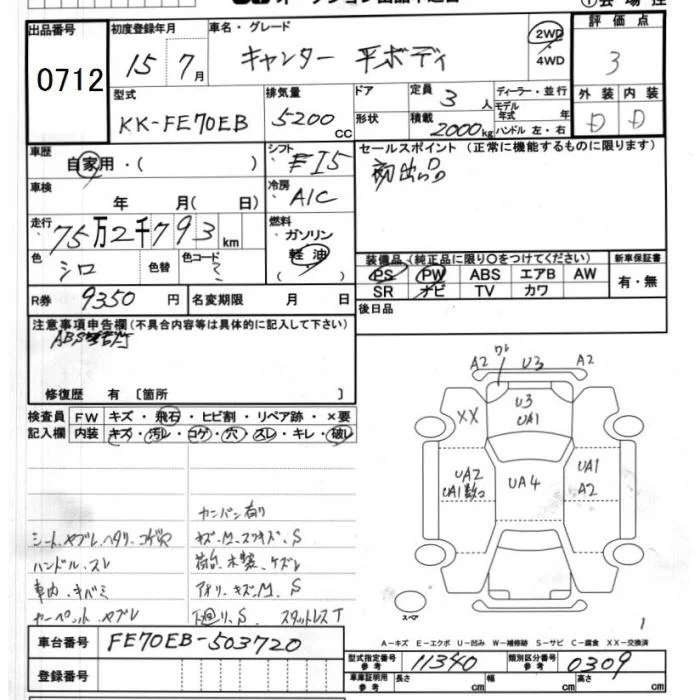 出品番号 0712
初度登録年月 15年 7月
車名・グレード キャンター 平ボディ
2WD・4WD
評価点 3
型式 KK-FE70EB
排気量 5200cc
ドア
形状
定員 3人
積載 2000kg
ディーラー・並行
モデル年式 年
ハンドル 左・右
外装 D
内装 D
車歴 自家用・( )
シフト F15
セールスポイント (正常に機能するものに限ります)
初出品
車検 年 月( 日)
冷房 A/C
走行 75万2千793km
燃料 ガソリン
軽油
色 シロ
色替
色コード
装備品 (純正品に限り○をつけてください)
新車保証書
PS PW ABS エアB AW
SR ナビ TV カワ
有・無
R券 9350円
名変期限 月 日
後日品
注意事項申告欄(不具合内容等は具体的に記入して下さい)
修復歴 有 〔箇所 〕
検査員記入欄 FW キズ・飛石・ヒビ割・リペア跡・×要
内装 キズ・汚レ・コゲ・穴・スレ・キレ・破レ
カンバン有り
シート.ヤブレ.ヘタリ.コゲ穴
ハンドル.スレ
荷台.木製.ケズレ
車内.キバミ
アオリ.キズ.M.S
カーペット.ヤブレ
下回り.S スタットレスT
A2 ワレ U3 A2
XX
U3
UA1
UA2
UA1
UA4
UA1
A2
スペア
1
A-キズ E-エクボ U-凹み W-補修跡 S-サビ C-腐食 XX-交換済
車台番号 FE70EB-503720
登録番号
型式指定番号 参考 11340
類別区分番号 参考 0309
車庫証明用 参考 長さ cm 幅 cm 高さ cm